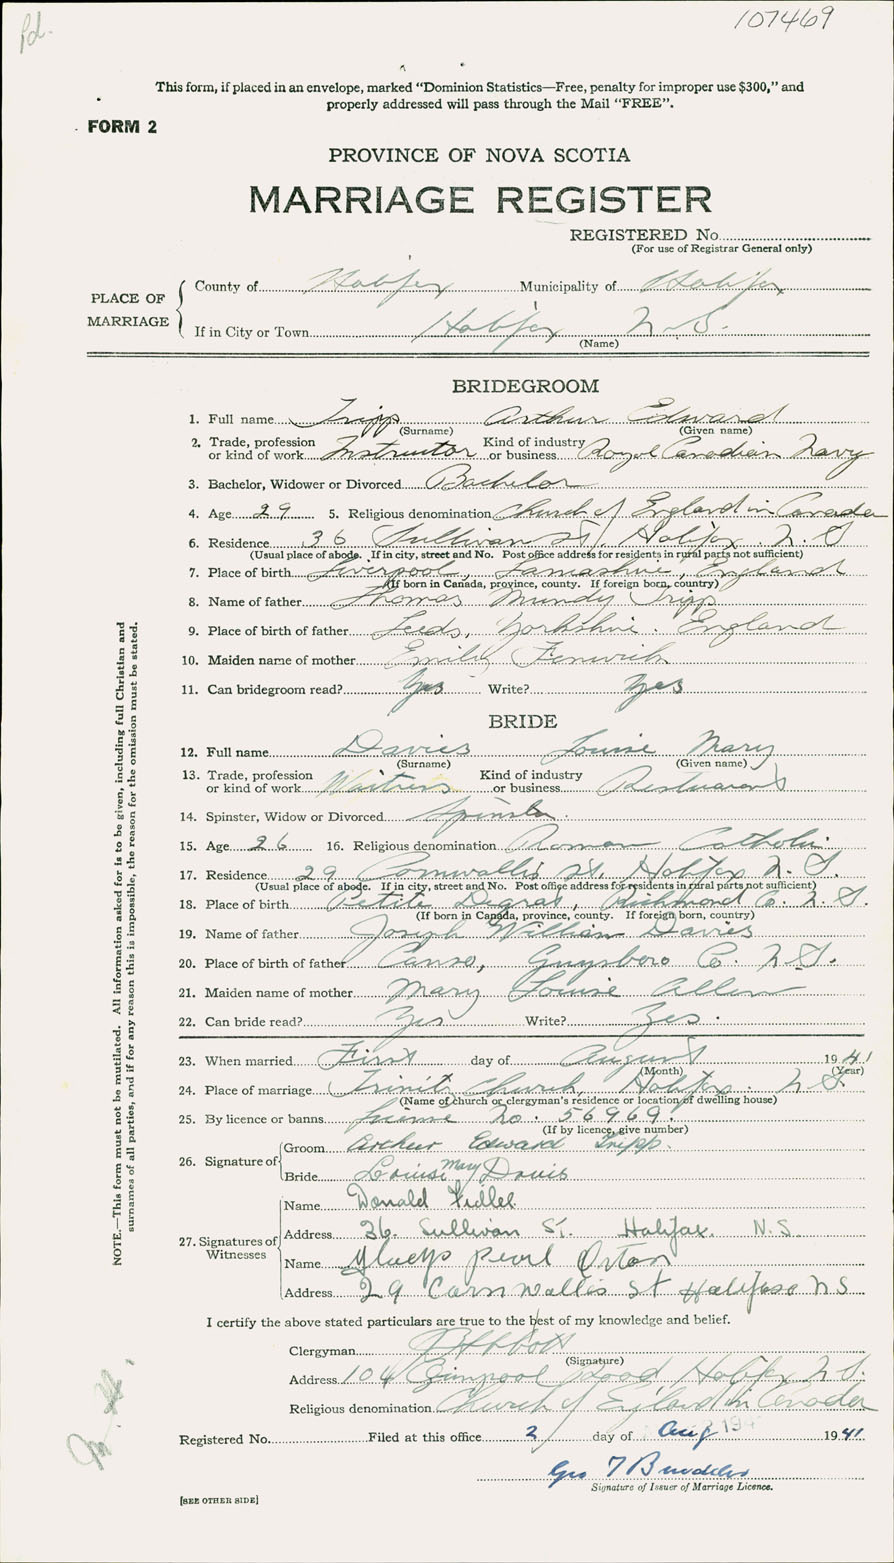 Pd.
107469
This form, if placed in an envelope, marked “Dominion Statistics—Free, penalty for improper use $300,” and
properly addressed will pass through the Mail “FREE”.
FORM 2
PROVINCE OF NOVA SCOTIA
MARRIAGE REGISTER
REGISTERED No.
(For use of Registrar General only)
PLACE OF MARRIAGE
County of Halifax Municipality of Halifax
If in City or Town Halifax N.S.
(Name)
BRIDEGROOM
1. Full name Tripp Arthur Edward
(Surname) (Given name)
2. Trade, profession or kind of work Instructor Kind of industry or business Royal Canadian Navy
3. Bachelor, Widower or Divorced Bachelor
4. Age 29 5. Religious denomination Church of England in Canada
6. Residence 36 Sullivan St. Halifax. N.S
(Usual place of abode. If in city, street and No. Post office address for residents in rural parts not sufficient)
7. Place of birth Liverpool, Lancashire, England
(If born in Canada, province, county. If foreign born, country)
8. Name of father Thomas Mundy Tripp
9. Place of birth of father Leeds, Yorkshire. England
10. Maiden name of mother Emily Fenwick
11. Can bridegroom read? Yes Write? Yes
BRIDE
12. Full name Davies Louise Mary
(Surname) (Given name)
13. Trade, profession or kind of work Waitress Kind of industry or business Restuarant
14. Spinster, Widow or Divorced Spinster
15. Age 26 16. Religious denomination Roman Catholic
17. Residence 29 Cornwallis St. Halifax N.S.
(Usual place of abode. If in city, street and No. Post office address for residents in rural parts not sufficient)
18. Place of birth Petite Degras, Richmond Co. N.S.
(If born in Canada, province, county. If foreign born, country)
19. Name of father Joseph William Davies
20. Place of birth of father Canso, Guysboro Co. N.S.
21. Maiden name of mother Mary Louise Allen
22. Can bride read? Yes Write? Yes.
23. When married First day of August 1941
(Month) (Year)
24. Place of marriage Trinity Church, Halifax. N.S.
(Name of church or clergyman's residence or location of dwelling house)
25. By licence or banns license No. 56969.
(If by licence, give number)
26. Signature of
Groom Arthur Edward Tripp.
Bride Louise Mary Davis
27. Signatures of Witnesses
Name Donald Fidler
Address 36. Sullivan St. Halifax. N.S
Name Gladys Pearl Orton
Address 29 Cornwallis St Halifax NS
I certify the above stated particulars are true to the best of my knowledge and belief.
Clergyman
(Signature)
Address 104 Road, Halifax N.S.
Religious denomination Church of England in Canada
Registered No. Filed at this office 2 day of Aug 1941
Geo T
Signature of Issuer of Marriage Licence.
[SEE OTHER SIDE]
NOTE.—This form must not be mutilated. All information asked for is to be given, including full Christian and
surnames of all parties, and if for any reason this is impossible, the reason for the omission must be stated.